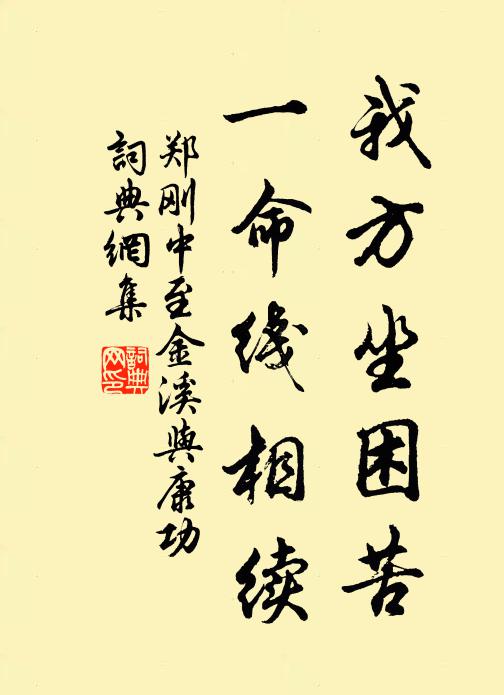 我方坐困苦
一命线相续
郑刚中至金溪與康功
詞典網集
詞典
网印